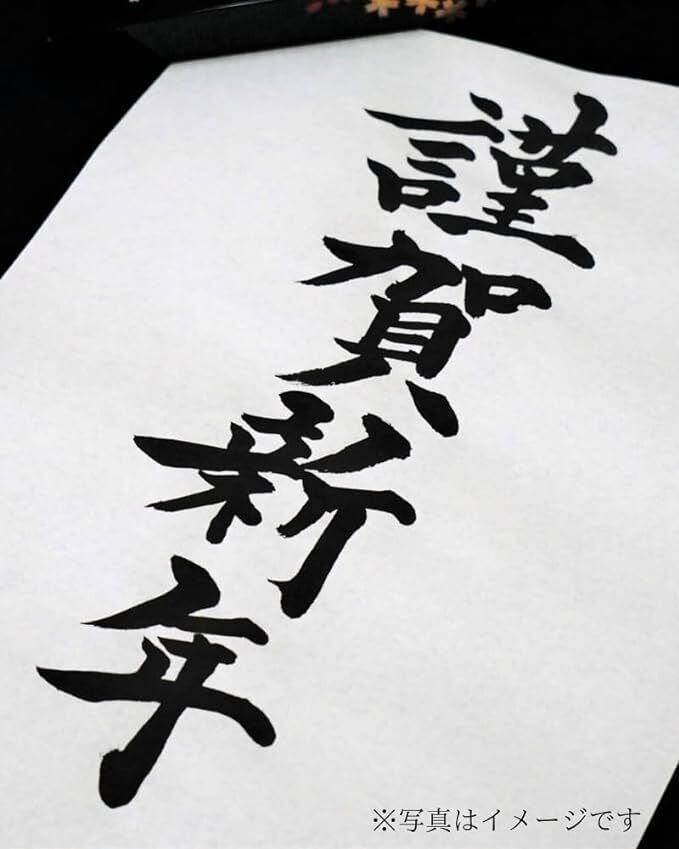 謹賀新年
※写真はイメージです